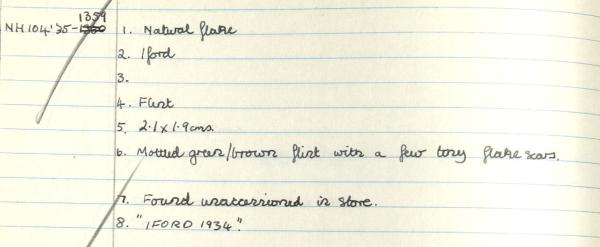 1359
NH104.'35-1360 1. Natural flake
2. Iford
3.
4. Flint
5. 2.1 x 1.9cms.
6. Mottled green/brown flint with a few tiny flake scars.
7. Found unaccessioned in store.
8. "IFORD 1934".